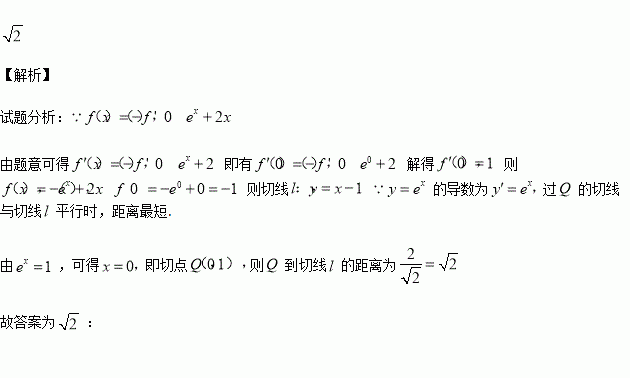 √2
【解析】
试题分析：∵ f(x) = (-)f′ 0 e^x + 2x
由题意可得 f′(x) = (-)f′ 0 e^x + 2 即有 f′(0) = (-)f′ 0 e^0 + 2 解得 f′(0) = 1 则
f(x) = -e^x + 2x f 0 = -e^0 + 0 = -1 则切线 l: y = x - 1 ∵ y = e^x 的导数为 y′ = e^x, 过 Q 的切线
与切线 l 平行时，距离最短.
由 e^x = 1 ，可得 x = 0, 即切点 Q(0,1) ,则 Q 到切线 l 的距离为 2/√2 = √2
故答案为 √2 ：